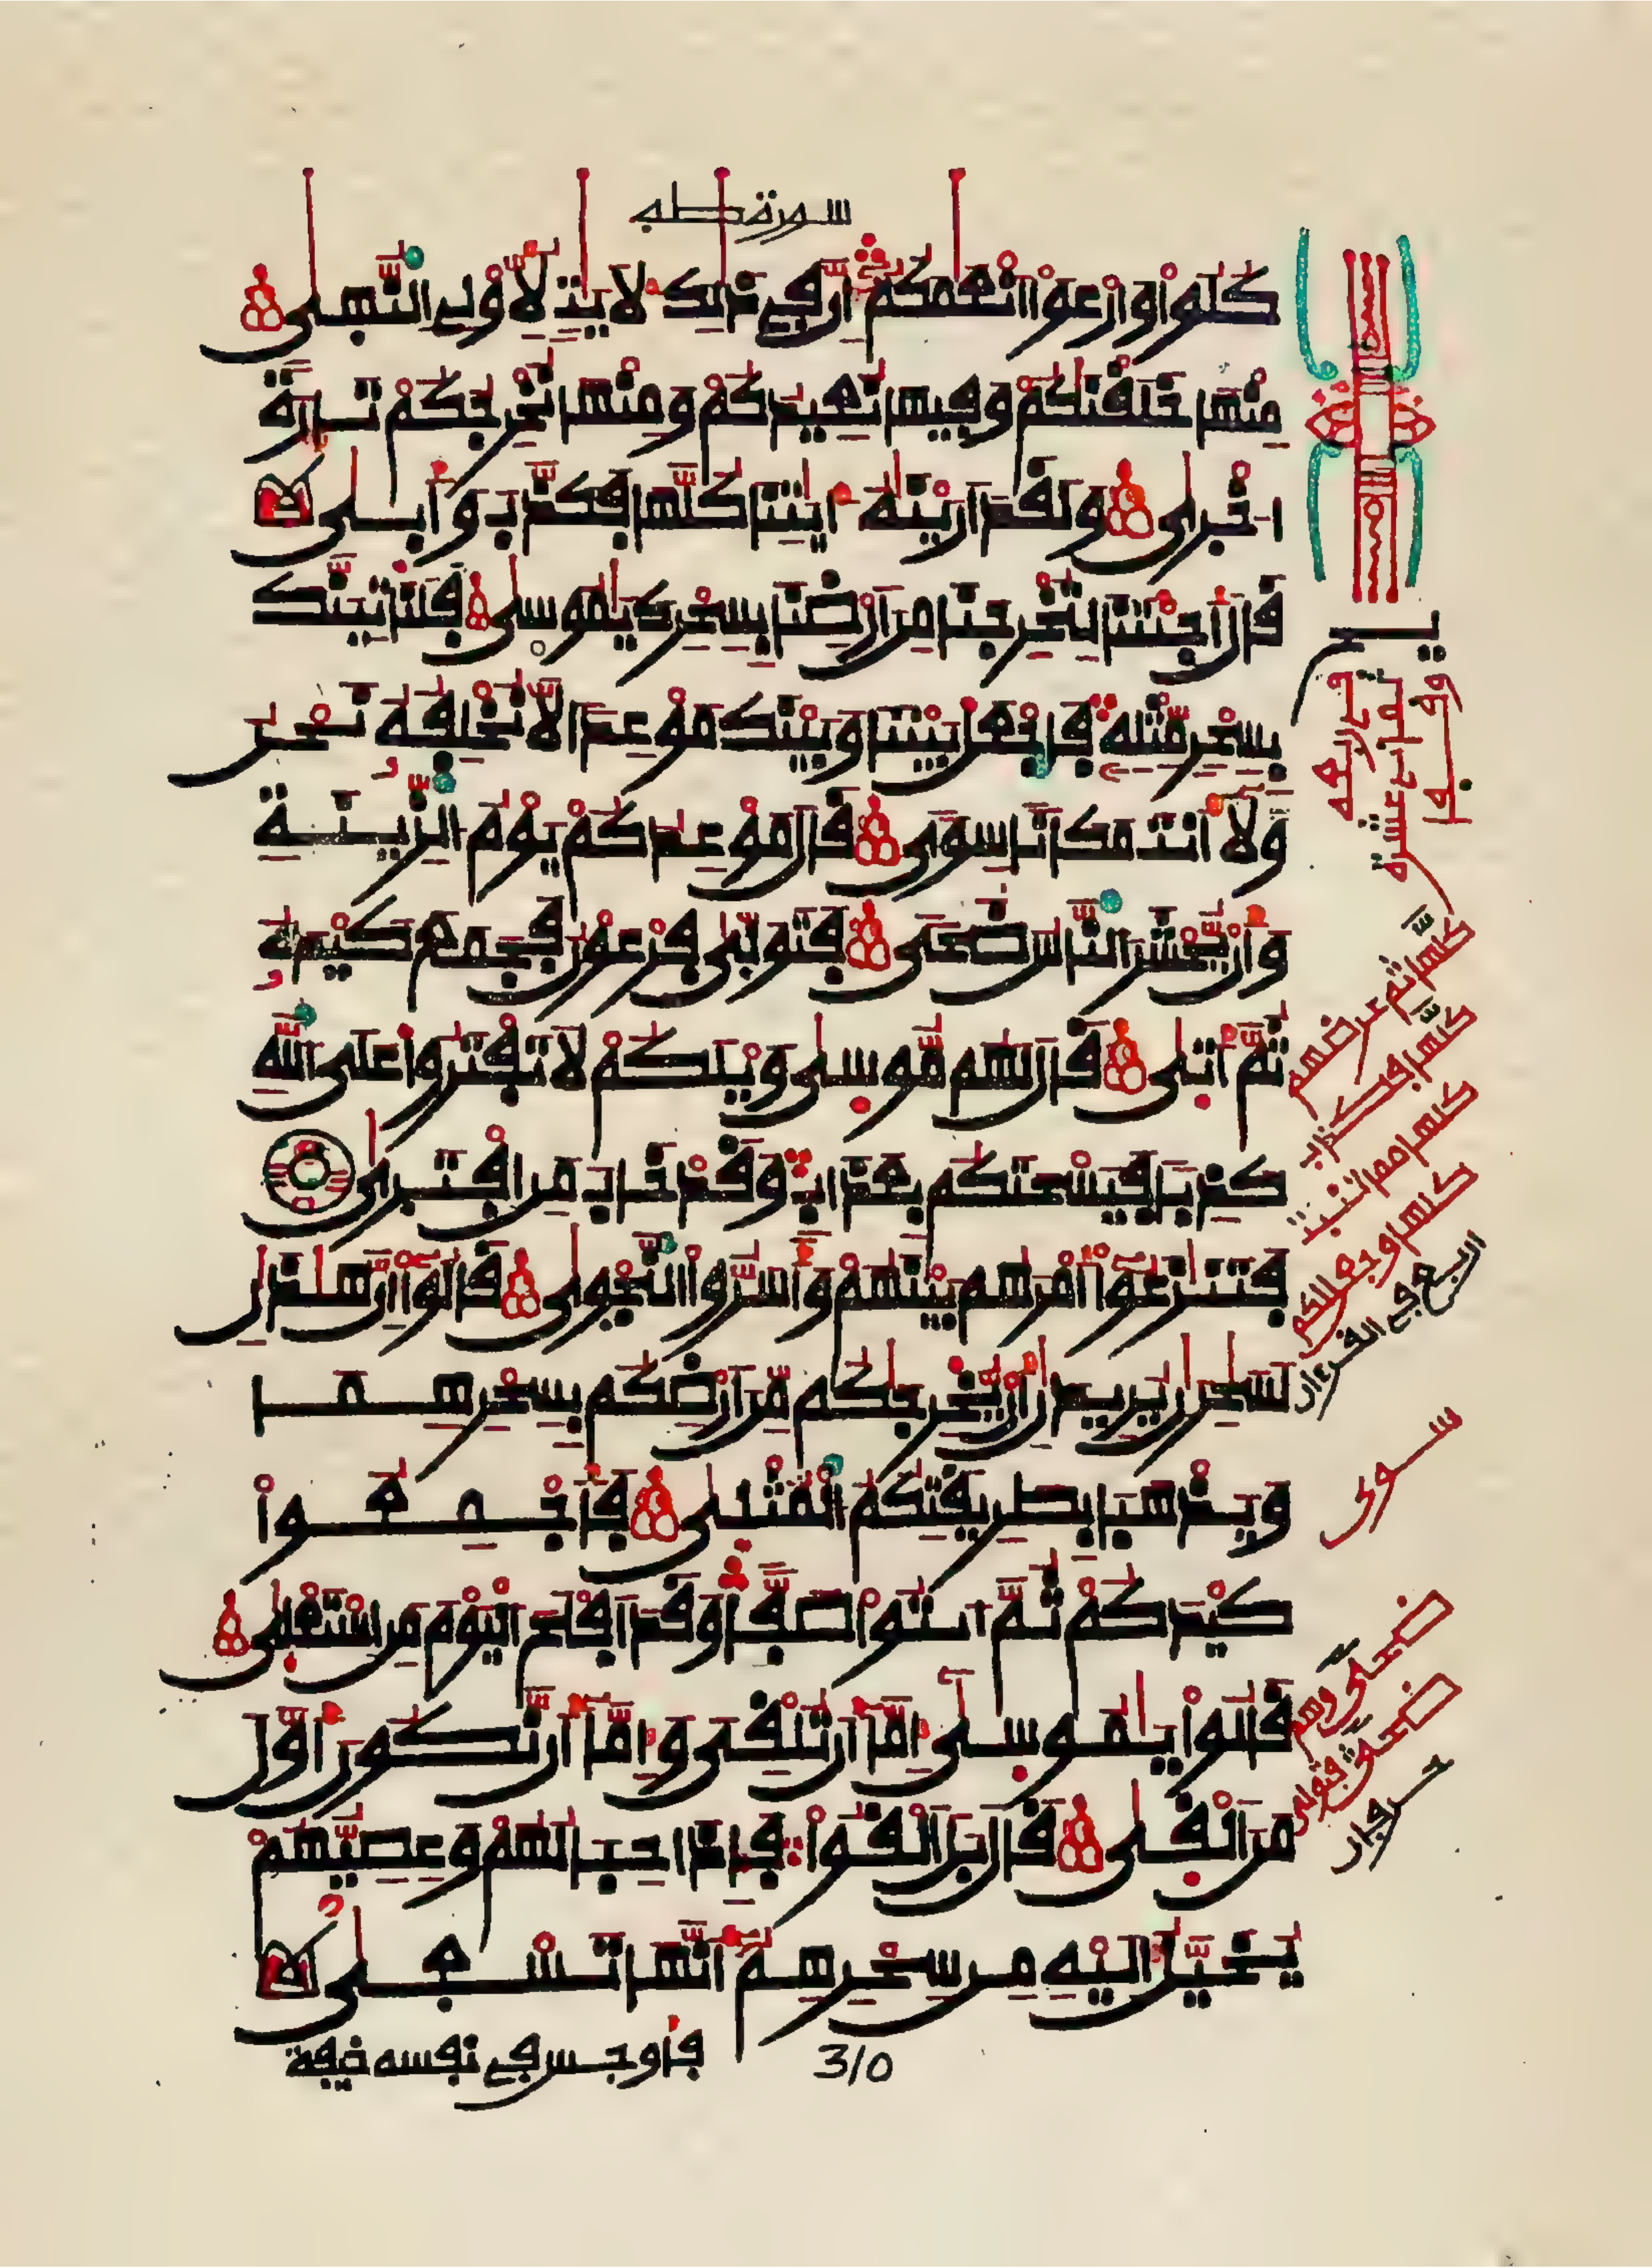 سورة طه
كُلُواْ وَارْعَوْاْ أَنْعَٰمَكُمْ إِنَّ فِے ذَٰلِكَ لَأٓيَٰتٖ لِّأُوْلِے اِ۬لنُّهَىٰ
مِنْهَا خَلَقْنَٰكُمْ وَفِيهَا نُعِيدُكُمْ وَمِنْهَا نُخْرِجُكُمْ تَارَةً
اخْر۪ىٰ وَلَقَدَ اَرَيْنَٰهُ ءَايَٰتِنَا كُلَّهَا فَكَذَّبَ وَأَب۪ىٰ
قَالَ أَجِئْتَنَا لِتُخْرِجَنَا مِنَ اَرْضِنَا بِسِحْرِكَ يَٰمُوس۪ىٰ فَلَنَاتِيَنَّكَ
بِسِحْرٖ مِّثْلِهِۦ فَاجْعَلْ بَيْنَنَا وَبَيْنَكَ مَوْعِداٗ لَّا نُخْلِفُهُۥ نَحْنُ
وَلَآ أَنتَ مَكَاناٗ سِوىٗ قَالَ مَوْعِدُكُمْ يَوْمُ اُ۬لزِّينَةِ
وَأَنْ يُّحْشَرَ اَ۬لنَّاسُ ضُحىٗ فَتَوَلَّىٰ فِرْعَوْنُ فَجَمَعَ كَيْدَهُۥ
ثُمَّ أَت۪ىٰ قَالَ لَهُم مُّوس۪ىٰ وَيْلَكُمْ لَا تَفْتَرُواْ عَلَى اَ۬للَّهِ
كَذِباٗ فَيَسْحَتَكُم بِعَذَابٖ وَقَدْ خَابَ مَنِ اِ۪فْتَر۪ىٰ
فَتَنَٰزَعُوٓاْ أَمْرَهُم بَيْنَهُمْ وَأَسَرُّواْ اُ۬لنَّجْو۪ىٰ قَالُوٓاْ إِنَّ هَٰذَٰنِ
لَسَٰحِرَٰنِ يُرِيدَٰنِ أَنْ يُّخْرِجَٰكُم مِّنَ اَرْضِكُم بِسِحْرِهِمَا
وَيَذْهَبَا بِطَرِيقَتِكُمُ اُ۬لْمُثْلَىٰ فَأَجْمِعُواْ
كَيْدَكُمْ ثُمَّ اَ۪ئْتُواْ صَفّاٗ وَقَدَ اَفْلَحَ اَ۬لْيَوْمَ مَنِ اِ۪سْتَعْلَىٰ
قَالُواْ يَٰمُوس۪ىٰٓ إِمَّآ أَن تُلْقِيَ وَإِمَّآ أَن نَّكُونَ أَوَّلَ
مَنَ اَلْق۪ىٰ قَالَ بَلَ اَلْقُواْ فَإِذَا حِبَالُهُمْ وَعِصِيُّهُمْ
يُخَيَّلُ إِلَيْهِ مِن سِحْرِهِمُۥٓ أَنَّهَا تَسْع۪ىٰ
فأوجس في نفسه خيفة
310
كلها ثم عرضهم
كلها فكذب
كلها مما تنبت
كلها وجعل لكم
اربع في القرءان
سوى
ضحى وهم
ضحى فتولى
حرفان